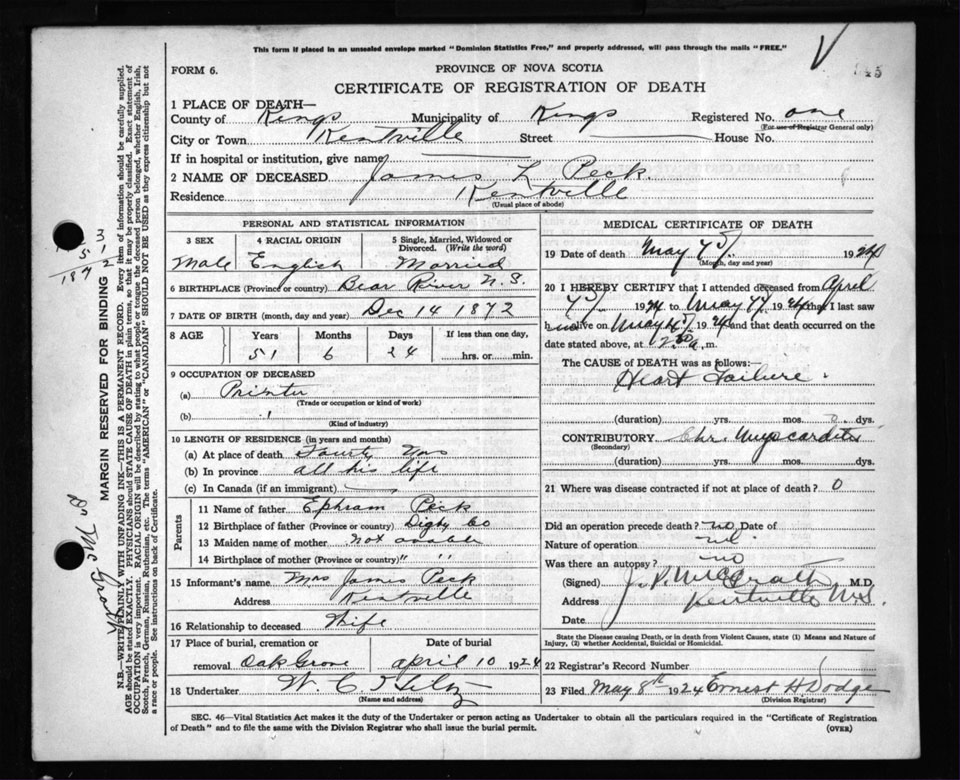 This form if placed in an unsealed envelope marked "Dominion Statistics Free," and properly addressed, will pass through the mails "FREE."
FORM 6.
PROVINCE OF NOVA SCOTIA
CERTIFICATE OF REGISTRATION OF DEATH
1 PLACE OF DEATH—
County of Kings Municipality of Kings Registered No. one
(For use of Registrar General only)
City or Town Kentville Street House No.
If in hospital or institution, give name
2 NAME OF DECEASED James L Peck.
Residence Kentville
(Usual place of abode)
PERSONAL AND STATISTICAL INFORMATION
3 SEX 4 RACIAL ORIGIN 5 Single, Married, Widowed or Divorced. (Write the word)
Male English Married
6 BIRTHPLACE (Province or country) Bear River N.S.
7 DATE OF BIRTH (month, day and year) Dec 14 1872
8 AGE Years Months Days If less than one day,
51 6 24 hrs. or min.
9 OCCUPATION OF DECEASED
(a) Printer
(Trade or occupation or kind of work)
(b)
(Kind of industry)
10 LENGTH OF RESIDENCE (in years and months)
(a) At place of death Fourty yrs
(b) In province all his life
(c) In Canada (if an immigrant)
Parents
11 Name of father Ephram Peck
12 Birthplace of father (Province or country) Digby Co
13 Maiden name of mother not
14 Birthplace of mother (Province or country) " "
15 Informant's name Mrs James Peck
Address Kentville
16 Relationship to deceased Wife
17 Place of burial, cremation or removal Oak Grove
Date of burial
april 10 1924
18 Undertaker W. C.
(Name and address)
MEDICAL CERTIFICATE OF DEATH
19 Date of death May 1924
(Month, day and year)
20 I HEREBY CERTIFY that I attended deceased from April
1924 to May 1924, that I last saw
alive on May 1924 and that death occurred on
date stated above, at m.
The CAUSE of DEATH was as follows:
Heart Failure.
(duration) yrs. mos. dys.
CONTRIBUTORY Chr. Myocarditis
(Secondary)
(duration) yrs. mos. dys.
21 Where was disease contracted if not at place of death? 0
Did an operation precede death? no Date of
Nature of operation
Was there an autopsy? no
(Signed) J. P. McGrath M.D.
Address Kentville N.S.
Date
State the Disease causing Death, or in death from Violent Causes, state (1) Means and Nature of Injury, (2) whether Accidental, Suicidal or Homicidal.
22 Registrar's Record Number
23 Filed May 8th 1924 Ernest H Dodge
(Division Registrar)
SEC. 46—Vital Statistics Act makes it the duty of the Undertaker or person acting as Undertaker to obtain all the particulars required in the "Certificate of Registration of Death" and to file the same with the Division Registrar who shall issue the burial permit.
(OVER)
MARGIN RESERVED FOR BINDING
N.B.—WRITE PLAINLY WITH UNFADING INK—THIS IS A PERMANENT RECORD. Every item of information should be carefully supplied.
AGE should be stated EXACTLY. PHYSICIANS should STATE CAUSE OF DEATH in plain terms, so that it may be properly classified. Exact statement of
OCCUPATION is very important. RACIAL ORIGIN will be described by stating to what people or tongue the deceased person belonged, whether English, Irish,
Scotch, French, German, Russian, Ruthenian, etc. The terms "AMERICAN" or "CANADIAN" SHOULD NOT BE USED as they express citizenship but not
a race or people. See instructions on back of Certificate.